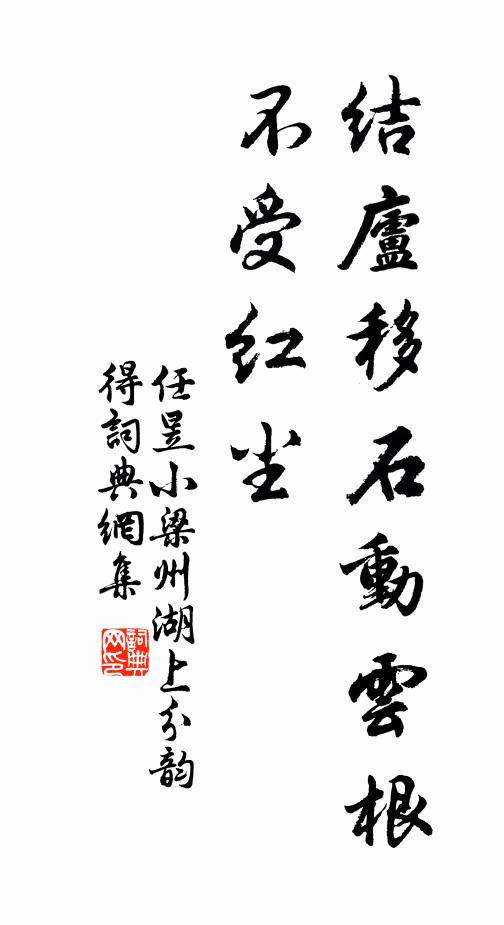 结廬移石動雲根
不受红尘
任昱小梁州湖上分韵
得詞典網集
詞典网印